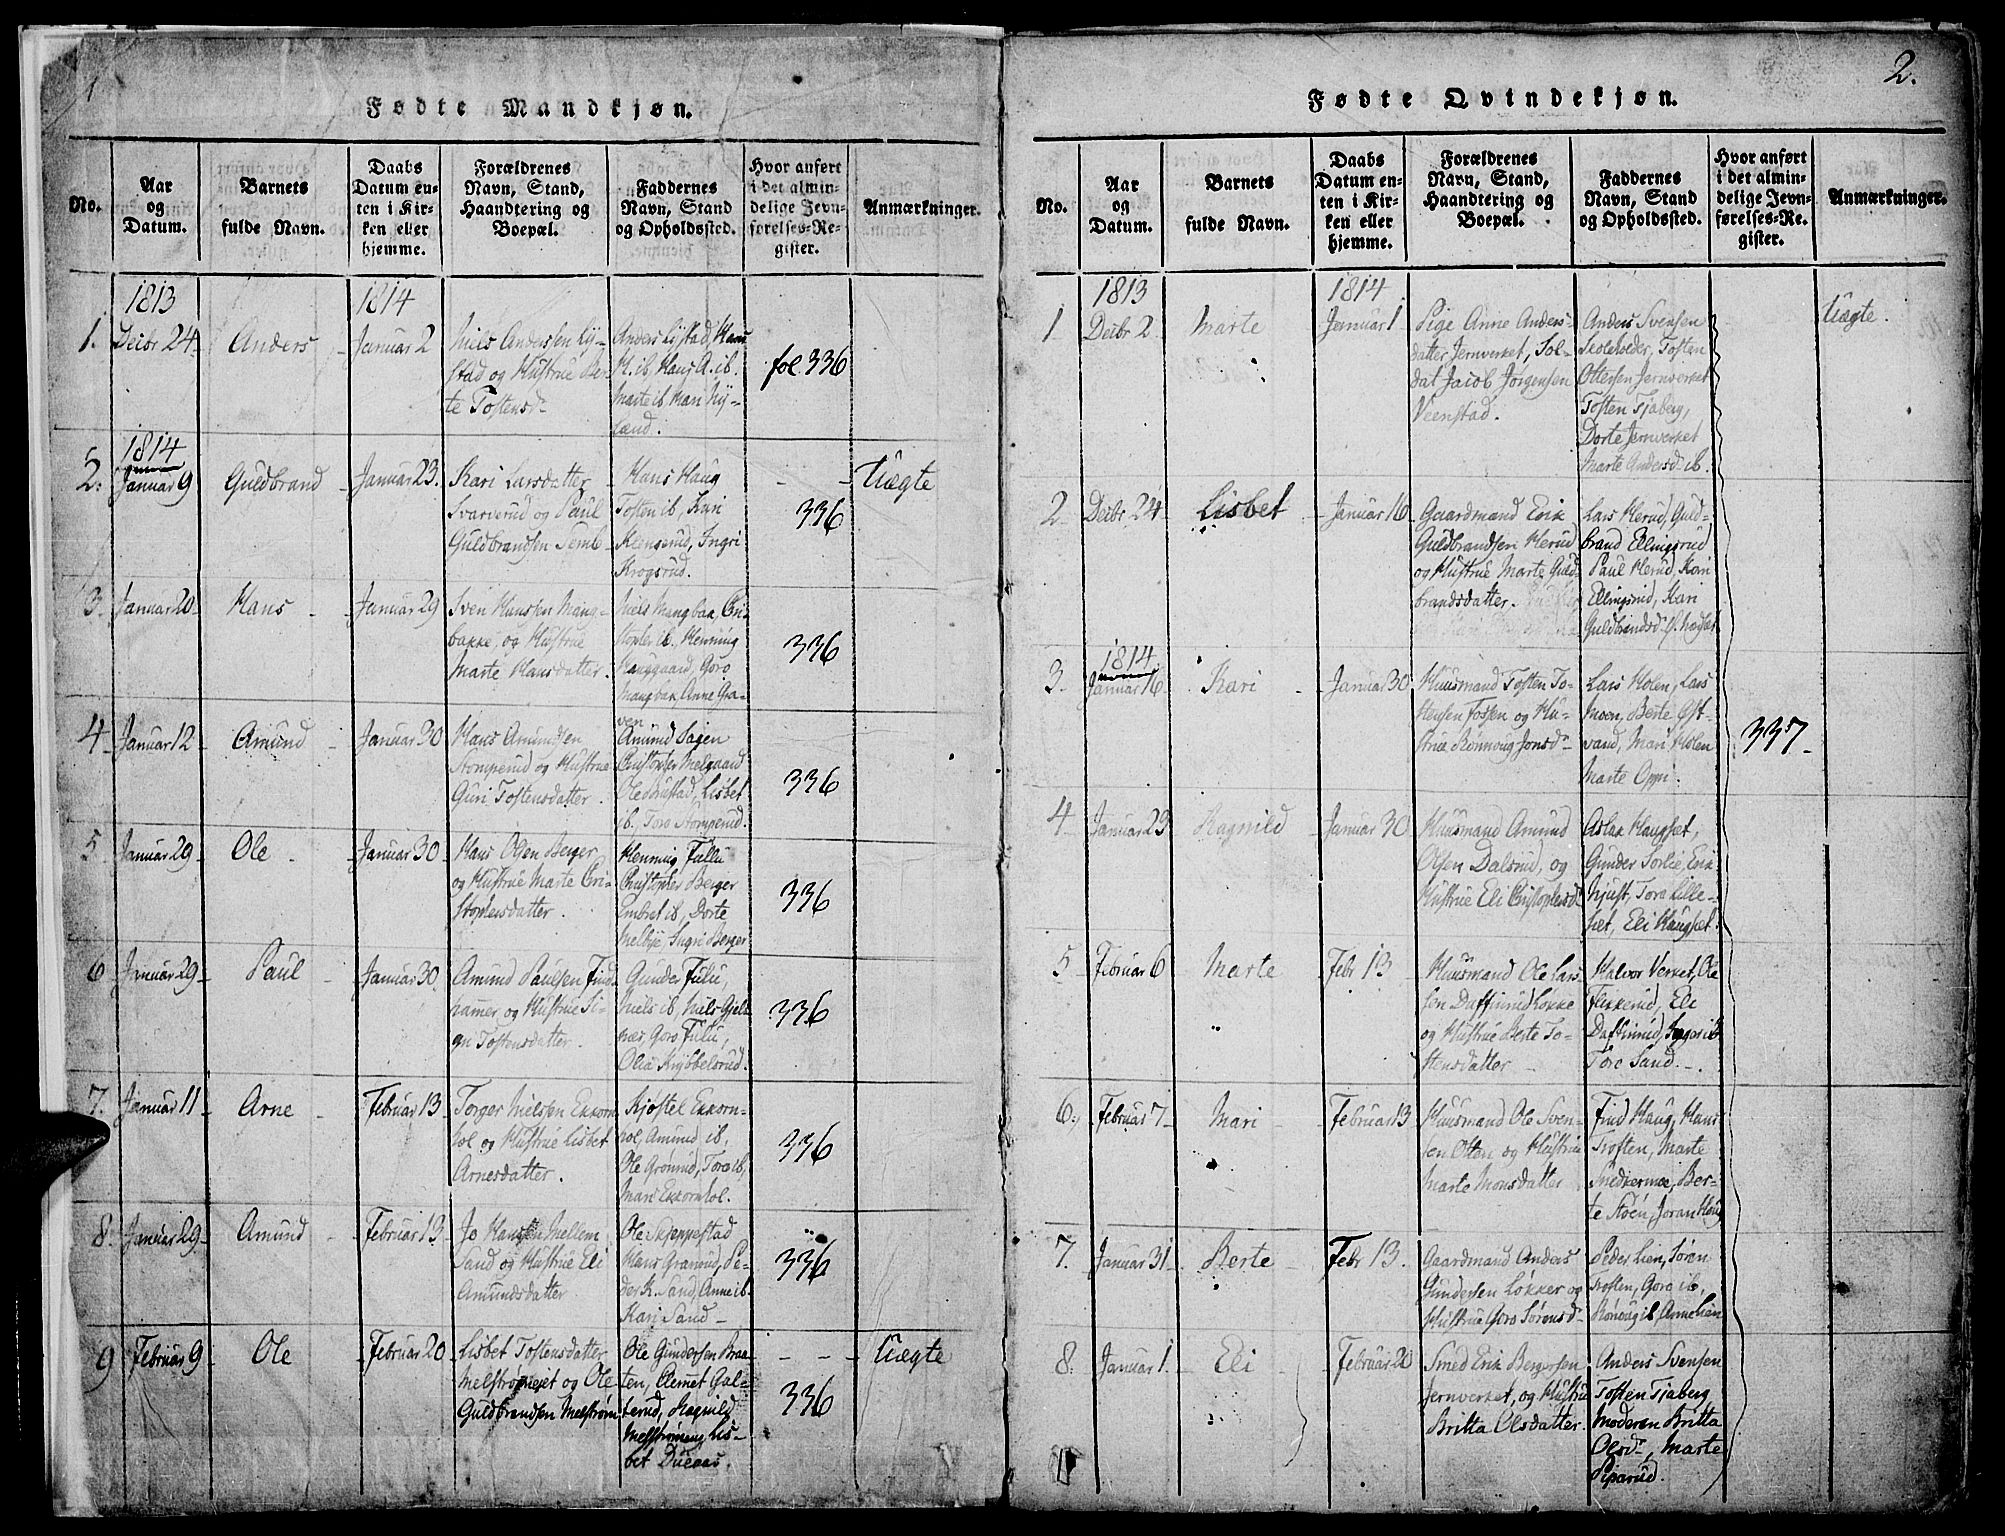 1
Fødte Mandkjøn.
No.
Aar og Datum.
Barnets fulde Navn.
Daabs Datum enten i Kirken eller hjemme.
Forældrenes Navn, Stand, Haandtering og Boepæl.
Faddernes Navn, Stand og Opholdssted.
Hvor anført i det almindelige Jevnførelses-Register.
Anmærkninger.
1813 1814
1. Decbr 24 Anders Januar 2
Niels Andersen Ly-
stad og Hustrue Ber-
te Tostensd
Anders Lystad, Hans
H. ib. Hans A. ib.
Marte ib. Mari Ny-
land.
fol. 336
1814
2. Januar 9 Guldbrand Januar 23.
Kari Larsdatter
Svarverud og Paul
Guldbrandsen Semb
Hans Haug
Tosten ib, Kari
Klenserud, Ingri
Krogsrud.
336
Uægte
3. Januar 20 Hans Januar 29
Sven Hansen Mang-
bakke, og Hustrue
Marte Hansdatter.
Niels Mangbak, Cri-
stopher ib. Henning
Hauggaard, Goro
Mangbak, Anne Gra-
ven
336
4. Januar 12 Amund Januar 30
Hans Amundsen
Stomperud og Hustrue
Guri Tostensdatter.
Amund Sagen
Christopher Melgaard
Ole, Lisbet
ib. Toro Stomperud.
336
5. Januar 29 Ole Januar 30
Hans Olsen Berger
og Hustrue Marte Cri-
stophersdatter.
Henning Fullu
Christopher Berger
Embret ib, Dorte
Melbye Ingri Berger
336
6 Januar 29 Paul Januar 30
Amund Paulsen Find-
hamer og Hustrue Si-
gn Tostensdatter.
Gunder Fulu,
Niels ib, Niels Gjel-
næs, Goro Fulu,
Olia Knybbelsrud.
336
7. Januar 11 Arne Februar 13
Torger Nielsen Ekkorn
hol og Hustrue Lisbet
Arnesdatter.
Kjostel Ekkorn-
hol, Amund ib,
Ole Grønrud, Toro ib,
Mari Ekkornhol.
336
8. Januar 29 Amund Februar 13
Jo Hansen Mellem
Sand og Hustrue Eli
Amundsdatter
Ole Skjeppestad
Hans Granrud, Pe-
der K. Sand, Anne ib.
Kari Sand
336
9 Februar 9 Ole Februar 20
Lisbet Tostensdatter
og Ole
Guldbrandsen Melstrøm
Ole Gundersen Braa-
ten, Clemet Gal-
terud, Ragnild
Melstrømeng Lis-
bet Dueaas.
336
Uægte
2.
Fødte Qvindekjøn.
No.
Aar og Datum.
Barnets fulde Navn.
Daabs Datum enten i Kirken eller hjemme.
Forældrenes Navn, Stand, Haandtering og Boepæl.
Faddernes Navn, Stand og Opholdssted.
Hvor anført i det almindelige Jevnførelses-Register.
Anmærkninger.
1813 1814
1 Decbr 2 Marte Januar 1
Pige Anne Anders-
datter Jernverket, Sol-
dat Jacob Jørgensen
Veenstad.
Anders Svensen
Skoleholder, Tosten
Ottersen Jernverket
Tosten Tjaberg,
Dorte Jernverket
Marte Andersd ib.
Uægte.
2 Decbr 24 Lisbet Januar 16
Gaardmand Erik
Guldbrandsen Herud
og Hustrue Marte Guld-
brandsdatter.
Lars Herud, Guld-
brand Ellingsrud
Paul Herud, Kari
Ellingsrud, Kari
Guldbrandsd
1814
3. Januar 16 Kari Januar 30
Huusmand Tosten To-
stensen Fossen og Hu-
strue Rønnoug Jonsd
Lars Holen, Lars
Moen, Berte Øst-
vand, Mari Holen
Marte Oppi.
337
4 Januar 23 Ragnild Januar 30
Huusmand Amund
Olsen Dalsrud, og
Hustrue Eli Christophersd
Aslak Haugset,
Gunder Torlie, Erik
Njust, Tora Lille-
set, Eli Haugset.
5 Februar 6 Marte Febr 13
Huusmand Ole Lar-
sen Daffinrud Løkke
og Hustrue Berte To-
stensdatter
Halvor Verket, Ole
Flikkerud, Eli
Daffinrud, ib
Tore Sand.
6. Februar 7 Mari Februar 13
Huusmand Ole Sven-
sen Otten og Hustrue
Marte Monsdatter
Find Haug, Hans
Trosten, Marte
Snedkermoe, Ber-
te Støen, Joran Haug
7. Januar 31 Berte Febr 13.
Gaardmand Anders
Gundersen Løkker og
Hustrue Goro Sørensd
Peder Lien, Søren
Trosten, Goro ib,
Rønoug ib, Anne Lien
8. Januar 1. Eli Februar 20
Smed Erik Bergersen
Jernverket, og Hustrue
Britta Olsdatter.
Anders Svensen
Tosten Tjaberg
Moderen Britta
Olsd, Marte
Piparud.